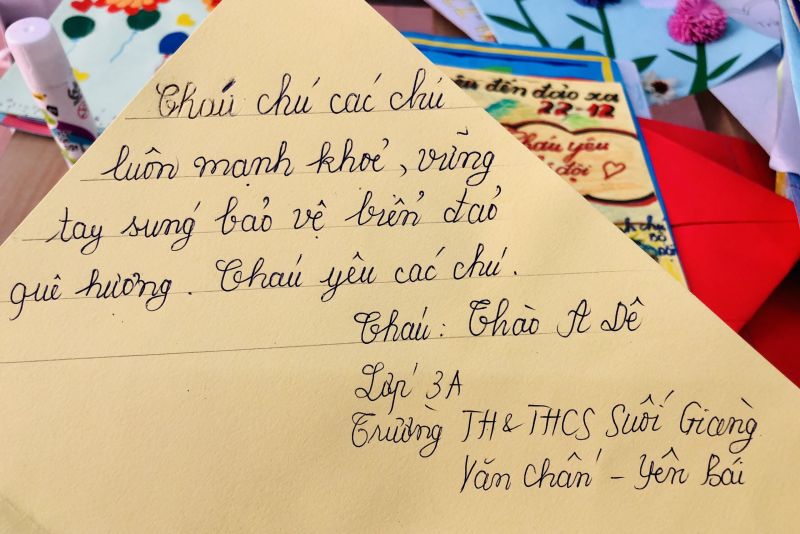 Cháu chú các chú
luôn mạnh khoẻ, vững
tay súng bảo vệ biển đảo
quê hương. Cháu yêu các chú.
Cháu: Thào A Dê
Lớp 3A
Trường TH & THCS Suối Giàng
Văn Chấn - Yên Bái
đến đảo xa
22-12
yêu
đội